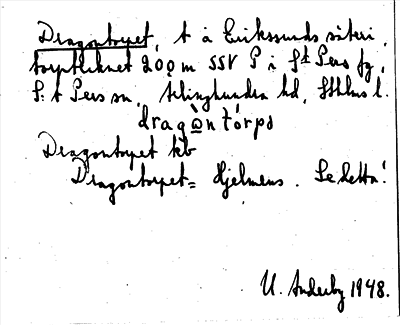 Dragontorpet, t å Erikssunds säteri,
torpliknet 200 m SSV P i St Pers fg,
S:t Pers sn, Ärlinghundra hd, Sthlms l.
dragὼntórpə
Dragontorpet kb
Dragontorpet = Hjelmens. Se detta!
U. Anderby 1948.